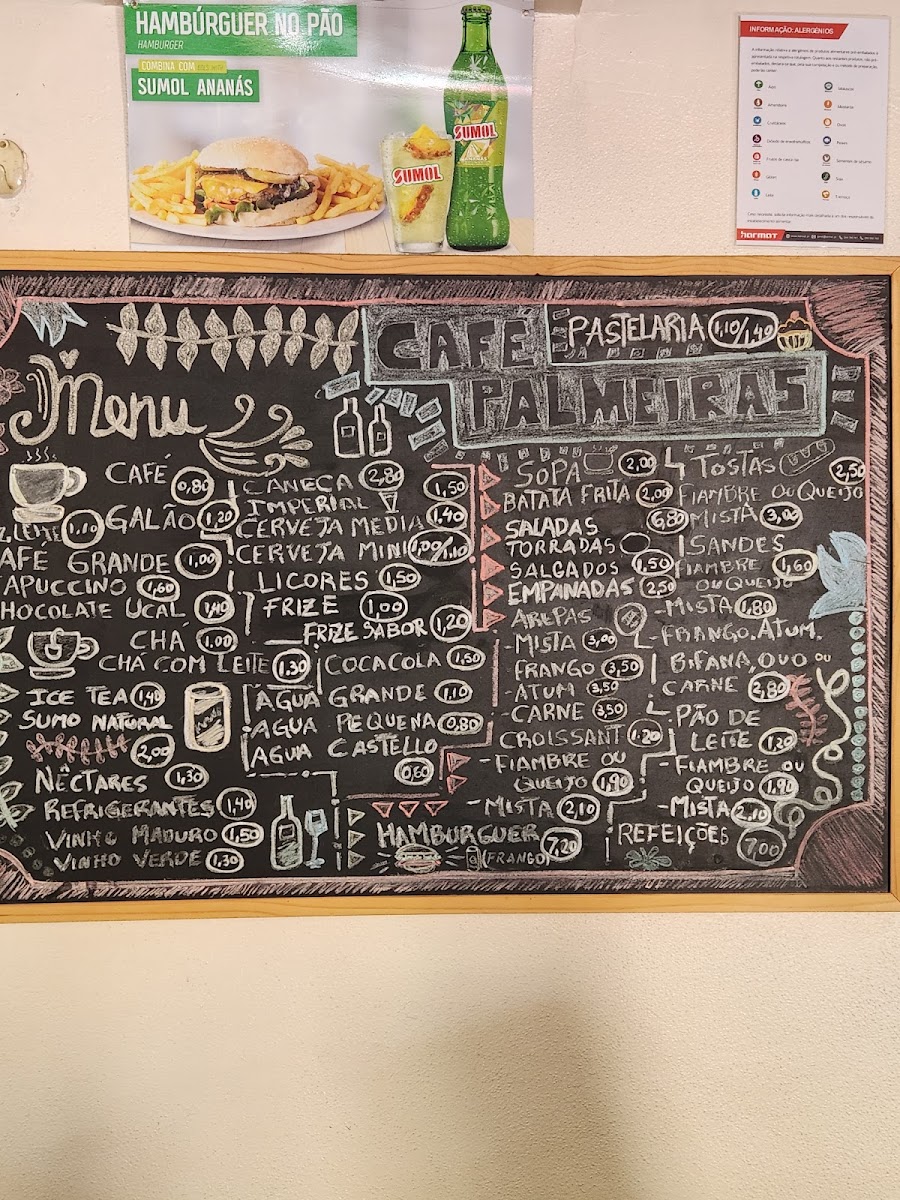 HAMBÚRGUER NO PÃO
HAMBURGER
COMBINA COM
SUMOL ANANÁS
SUMOL
SUMOL
INFORMAÇÃO: ALERGÉNIOS
Aipo
Glúten
Leite
Ovos
Peixes
Soja
Tremoço
Menu
CAFÉ PALMEIRAS
PASTELARIA 1,10/1,40
CAFÉ 0,80
LEITE 1,10
GALÃO 1,20
AFÉ GRANDE 1,00
APUCCINO 1,60
HOCOLATE UCAL 1,40
CHÁ 1,00
CHÁ COM LEITE 1,30
ICE TEA 1,40
SUMO NATURAL
2,00
NÉCTARES 1,30
REFRIGERANTES 1,40
VINHO MADURO 1,50
VINHO VERDE 1,30
CANECA 2,80
IMPERIAL 1,50
CERVEJA MEDIA 1,40
CERVEJA MINI 1,00/1,10
LICORES 1,50
FRIZE 1,00
FRIZE SABOR 1,20
COCACOLA 1,50
AGUA GRANDE 1,10
AGUA PEQUENA 0,80
AGUA CASTELLO
0,60
SOPA 2,00
BATATA FRITA 2,00
SALADAS 6,80
TORRADAS
SALGADOS 1,50
EMPANADAS 2,50
AREPAS
-MISTA 3,00
FRANGO 3,50
-ATUM 3,50
-CARNE 3,50
CROISSANT 1,20
-FIAMBRE OU
QUEIJO 1,90
-MISTA 2,10
HAMBURGUER 7,20
(FRANGO)
TOSTAS 2,50
FIAMBRE OU QUEIJO
MISTA 3,00
SANDES
FIAMBRE 1,60
OU QUEIJO
-MISTA 1,80
-FRANGO. ATUM.
BIFANA, OVO OU
CARNE 2,80
PÃO DE
LEITE 1,20
-FIAMBRE OU
QUEIJO 1,90
-MISTA 2,10
REFEIÇÕES 7,00